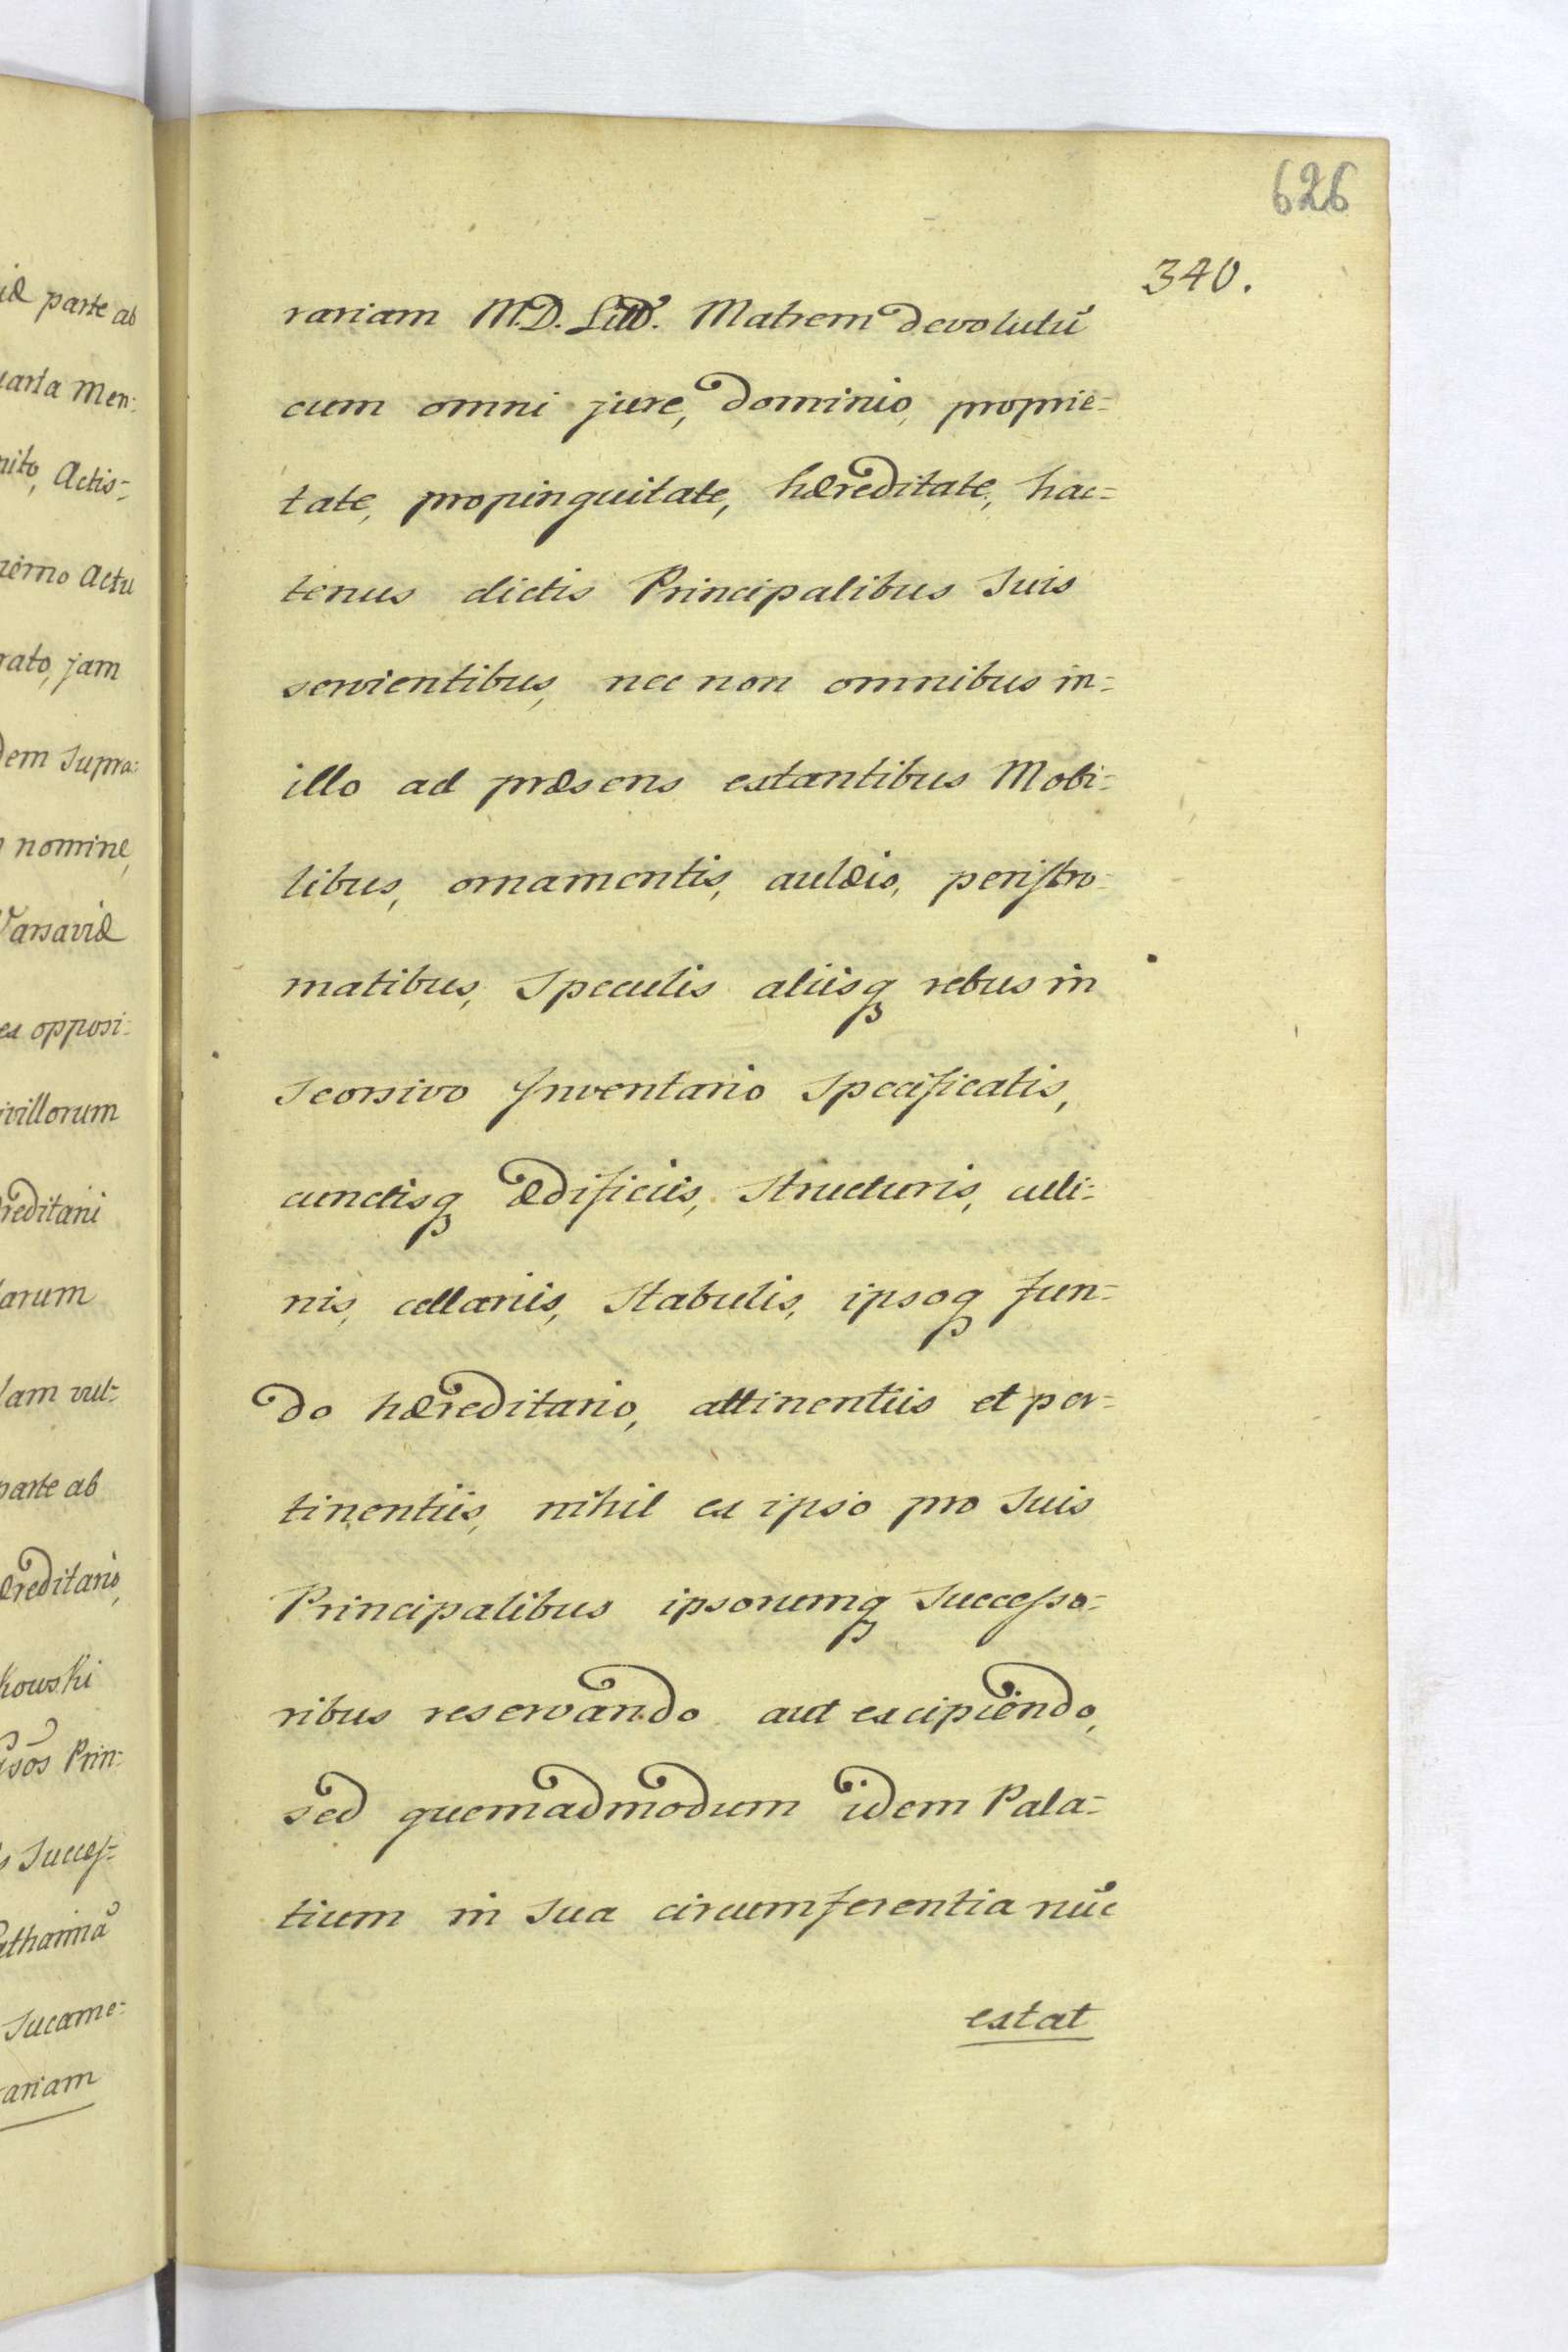 626
340.
rariam M.D. Litt. Matrem devolutū
cum omni jure, dominio, proprie=
tate, propinquitate, hæreditate, hac=
tenus dictis Principalibus Suis
servientibus, nec non omnibus in=
illo ad præsens extantibus Mobi=
libus, ornamentis, aulæis, peristro=
matibus, Speculis aliisq rebus in
Seorsivo Inventario Specificatis,
cunctisq ædificiis, Structuris, culi=
nis, cellariis, Stabulis, ipsoq fun=
do hæreditario, attinentiis et per=
tinentiis, nihil ex ipso pro Suis
Principalibus ipsorumq Successo=
ribus reservando aut excipiendo,
sed quemadmodum idem Pala=
tium in Sua circumferentia nūc
extat
parte ab
Men=
Actis=
Actu
jam
Supra=
nomine,
Varsaviæ
opposi=
parte ab
Prin=
Succes=
Sucame=